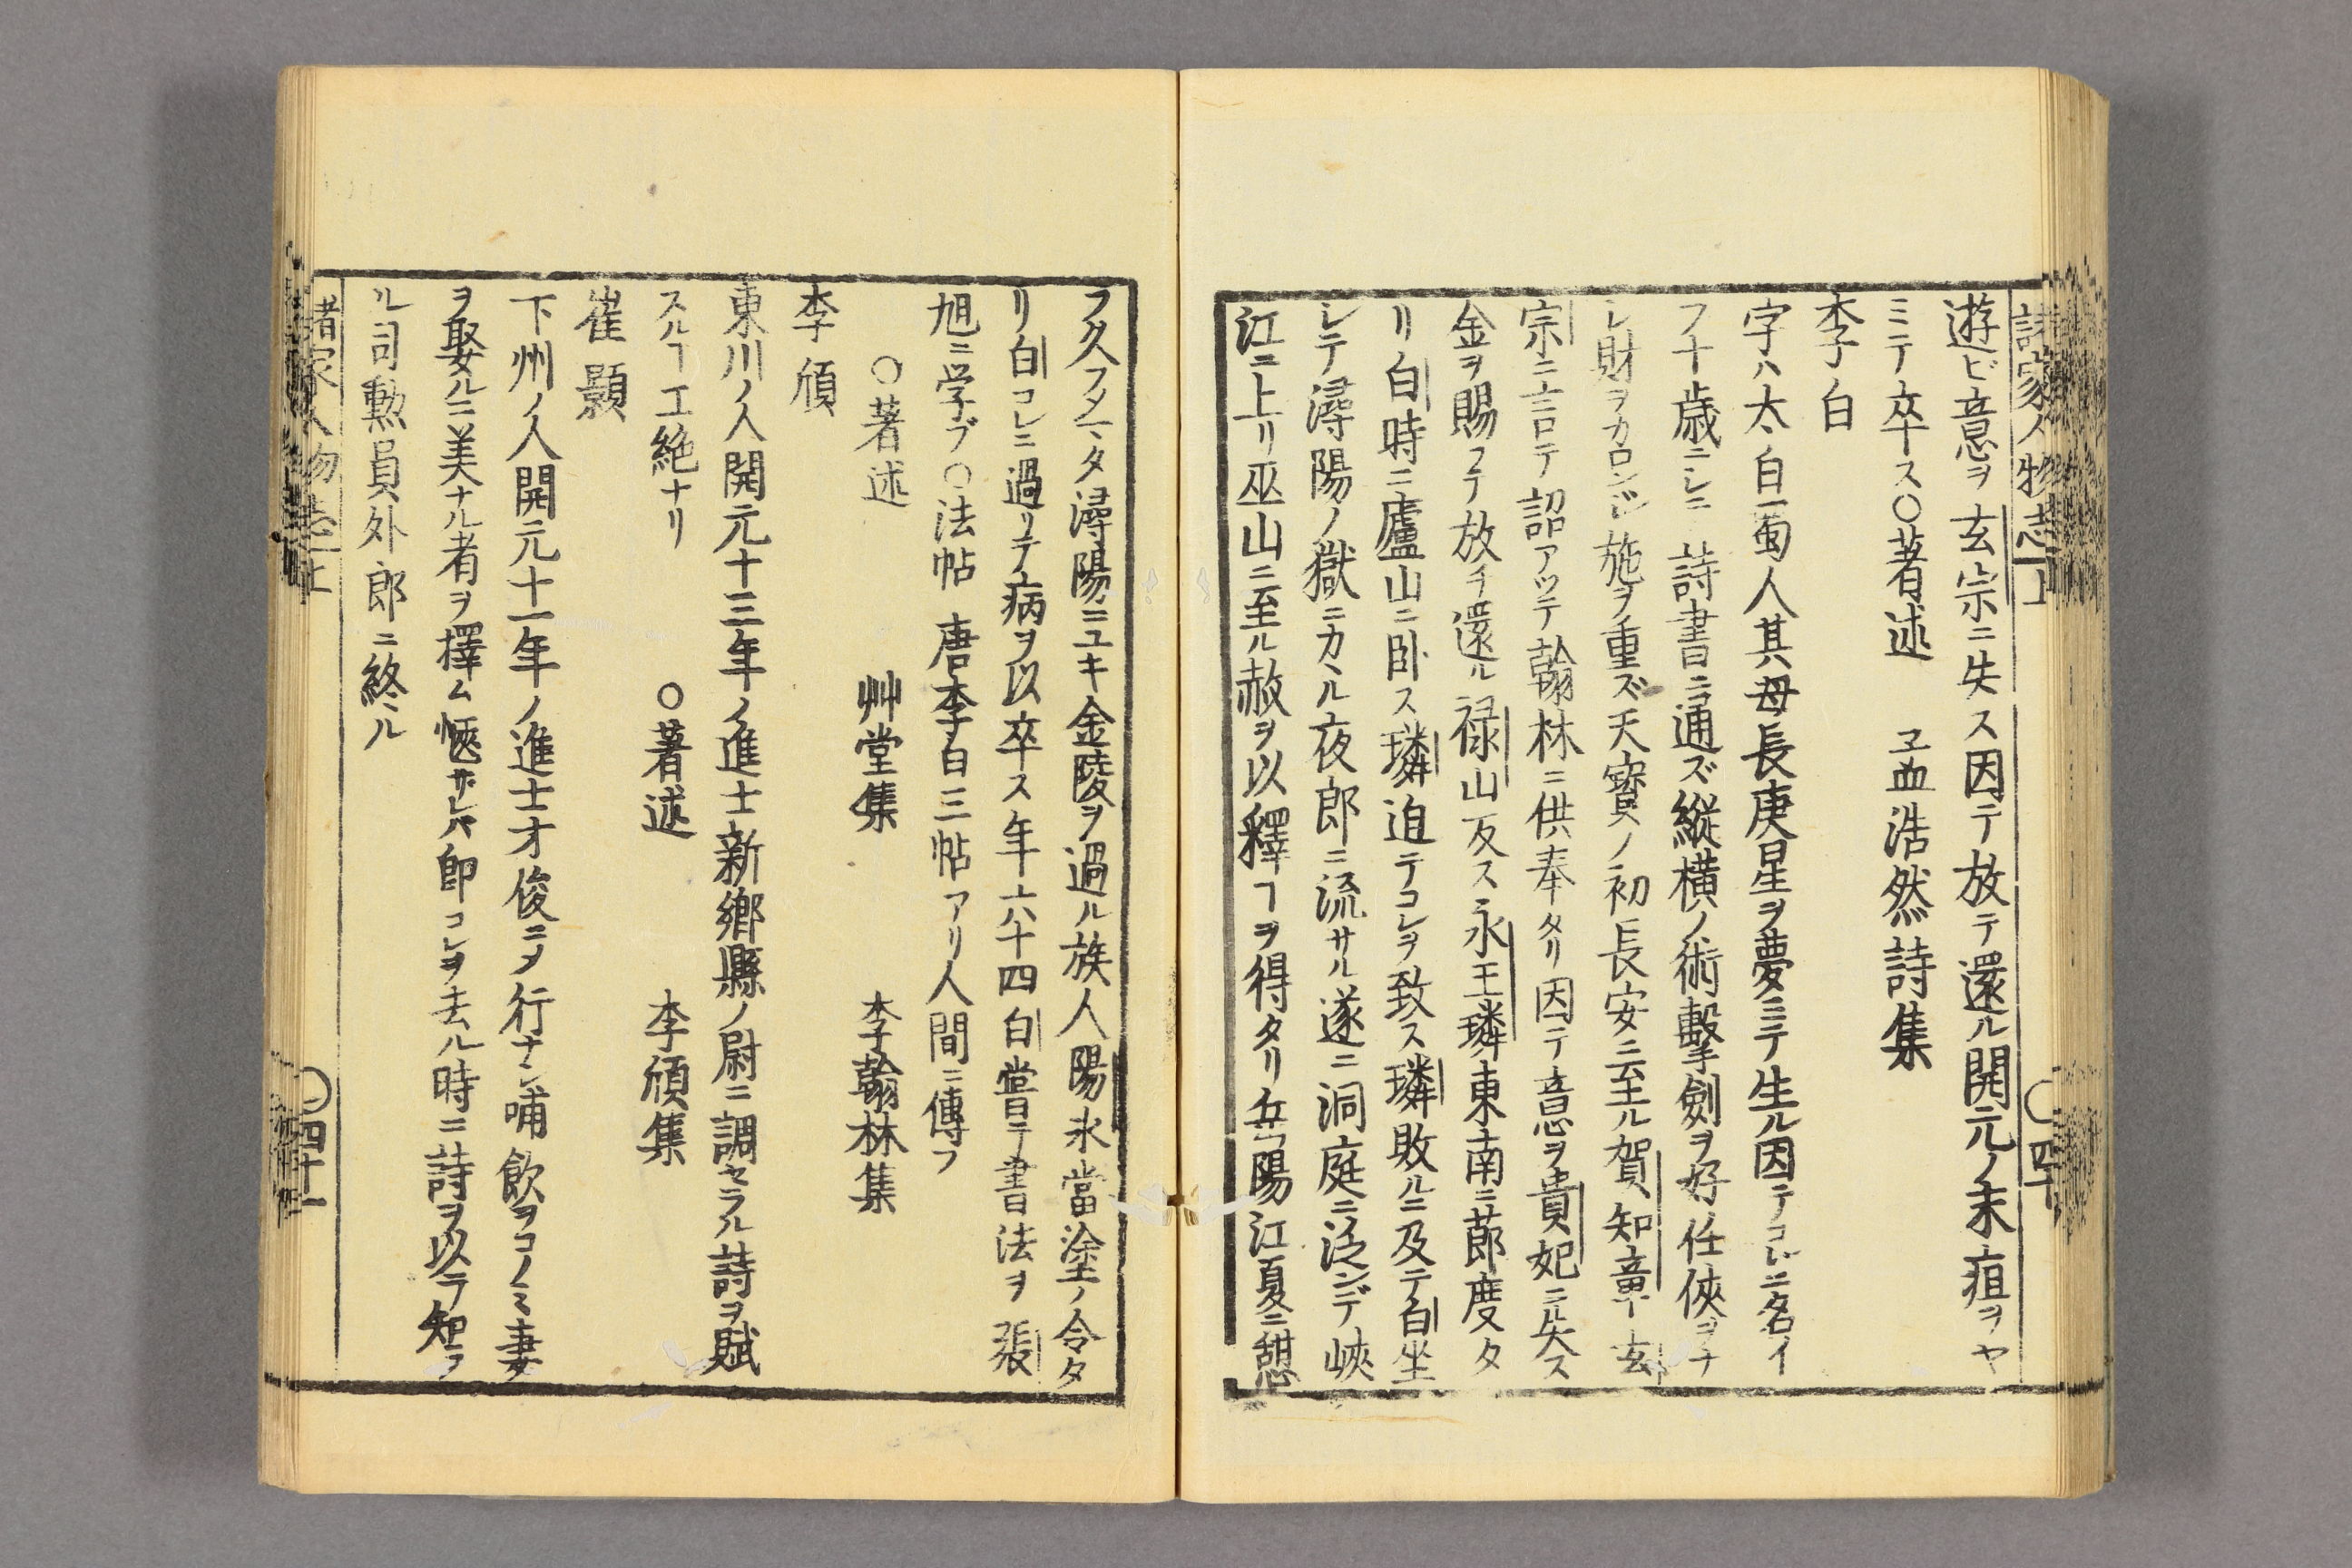 諸家人物志上 ○四十
遊ビ意ヲ玄宗ニ失ス因テ放テ還ル開元ノ末疽ヲヤ
ミテ卒ス○著述 孟浩然詩集
李白
字ハ太白蜀人其母長庚星ヲ夢ミテ生ル因テコレニ名イ
フ十歳ニシニ詩書ニ通ズ縦横ノ術擊劍ヲ好任俠ヲナ
シ財ヲカロンジ施ヲ重ズ天寳ノ初長安ニ至ル賀知章玄
宗ニ言テ詔アッテ翰林ニ供奉タリ因テ意ヲ貴妃ニ失ス
金ヲ賜フテ放チ還ル禄山反ス永王璘東南ニ節度タ
リ白時ニ廬山ニ卧ス璘迫テコレヲ致ス璘敗ルニ及テ白坐
シテ潯陽ノ獄ニカヽル夜郎ニ流サル遂ニ洞庭ニ泛ンデ峽
江ニ上リ巫山ニ至ル赦ヲ以釋ヿヲ得タリ岳陽江夏ニ憇
フ久フメマタ潯陽ニユキ金陵ヲ過ル族人陽氷當塗ノ令タ
リ白コレニ過リテ病ヲ以卒ス年六十四白嘗テ書法ヲ張
旭ニ学ブ○法帖 唐李白三帖アリ人間ニ傳フ
○著述 艸堂集 李翰林集
李頎
東川ノ人開元十三年ノ進士新鄉縣ノ尉ニ調セラル詩ヲ賦
スルヿ工絶ナリ ○著述 李頎集
崔顥
下州ノ人開元十一年ノ進士才俊ニメ行ナシ哺飲ヲコノミ妻
ヲ娶ルニ美ナル者ヲ擇ム愜サレバ即コレヲ去ル時ニ詩ヲ以テ知ラ
ル司勲員外郎ニ終ル
諸家人物志上 ○四十一